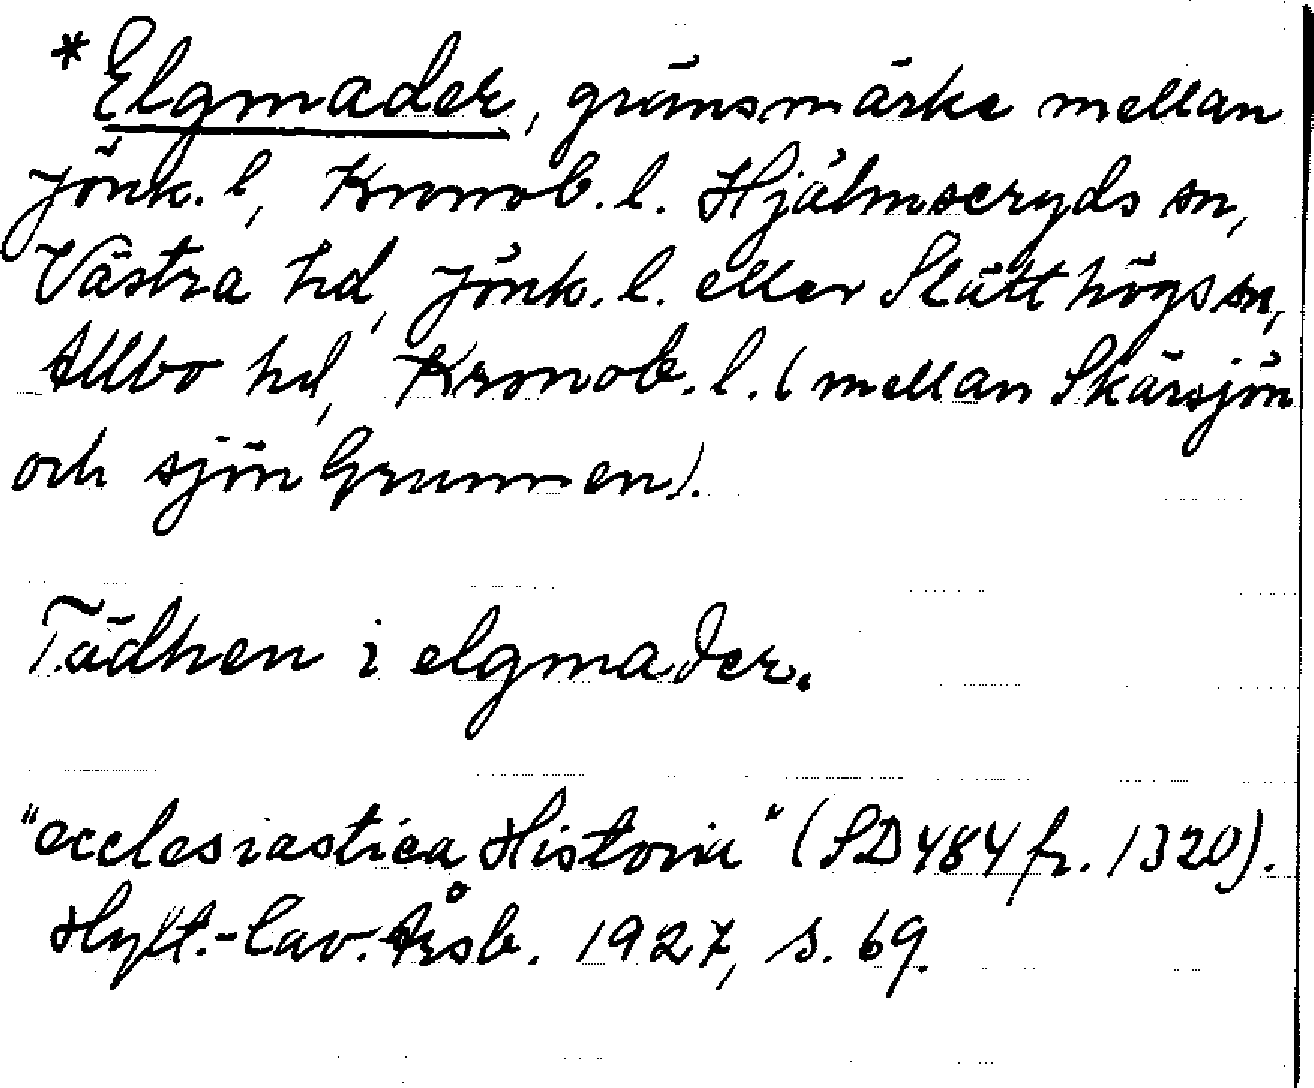 *Elgmader, gränsmärke mellan
Jönk. l, Kronob. l. Hjälmseryds sn,
Västra hd, Jönk. l. eller Slätthögs sn,
Allbo hd, Kronob. l. (mellan Skärsjön
och sjön Grunnen).
Tädhen i elgmader.
"ecclesiastica Historia" (SD 484 fr. 1320).
Hylt.-Cav. Årsb. 1927, s. 69.